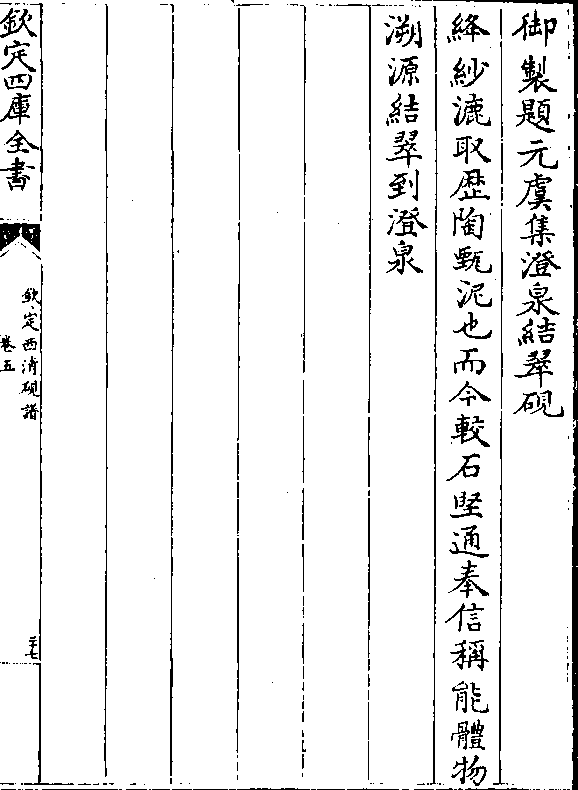 御製題元虞集澄泉結翠硯
絳紗漉取歴陶甄泥也而今較石堅通奉信稱能體物
溯源結翠到澄泉
欽定四庫全書
欽定西清硯譜
卷五
二十七